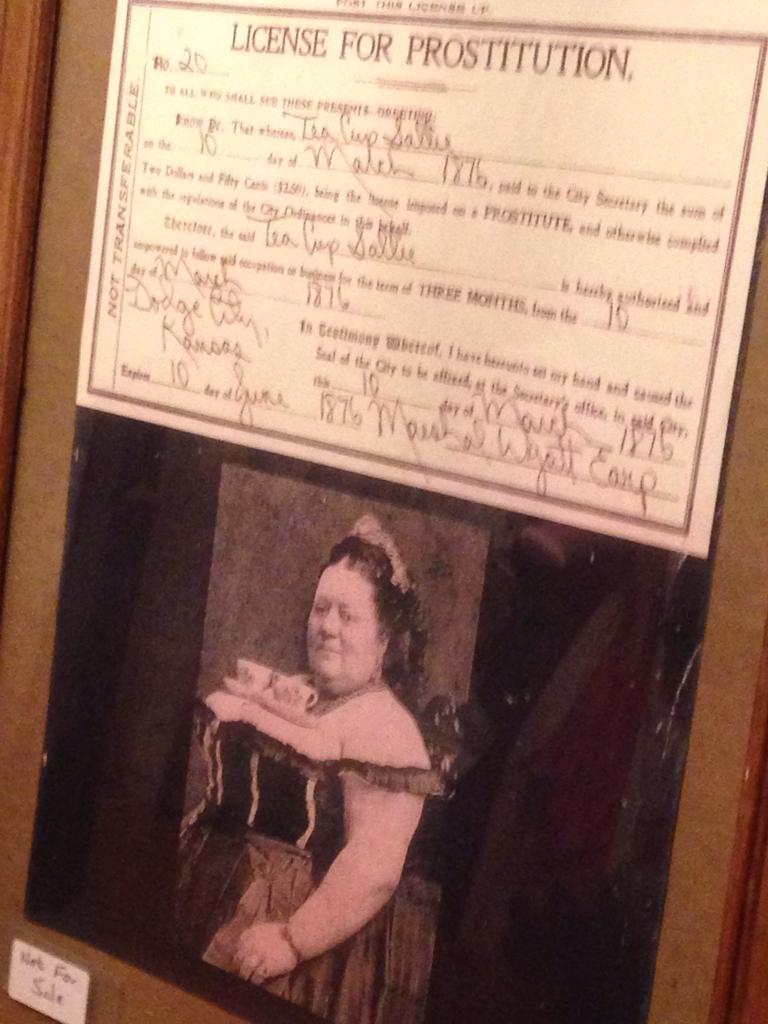 POST THIS LICENSE UP.
LICENSE FOR PROSTITUTION.
No. 20
NOT TRANSFERABLE.
TO ALL WHO SHALL SEE THESE PRESENTS GREETING:
Know Ye, That whereas, Tea Cup Sallie
on the 10 day of March 1876, paid to the City Secretary the sum of
Two Dollars and Fifty Cents ($2.50), being the license imposed on a PROSTITUTE, and otherwise complied
with the regulations of the City Ordinances in this behalf.
Therefore, the said Tea Cup Sallie is hereby authorized and
empowered to follow said occupation or business for the term of THREE MONTHS, from the 10
day of March 1876
Dodge City,
Kansas
In Testimony Whereof, I have hereunto set my hand and caused the
Seal of the City to be affixed, at the Secretary's office, in said City,
this 10 day of March 1876
Expires 10 day of June 1876
Marshal Wyatt Earp
Not For
Sale